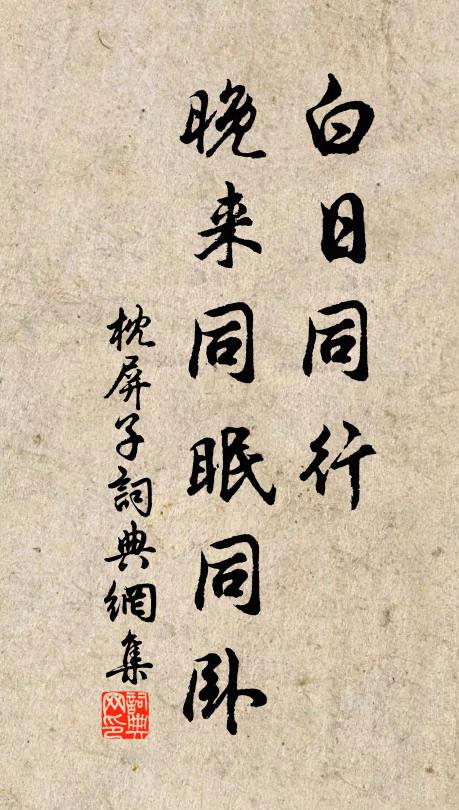 白日同行
晚来同眠同卧
枕屏子詞典網集
詞典网印